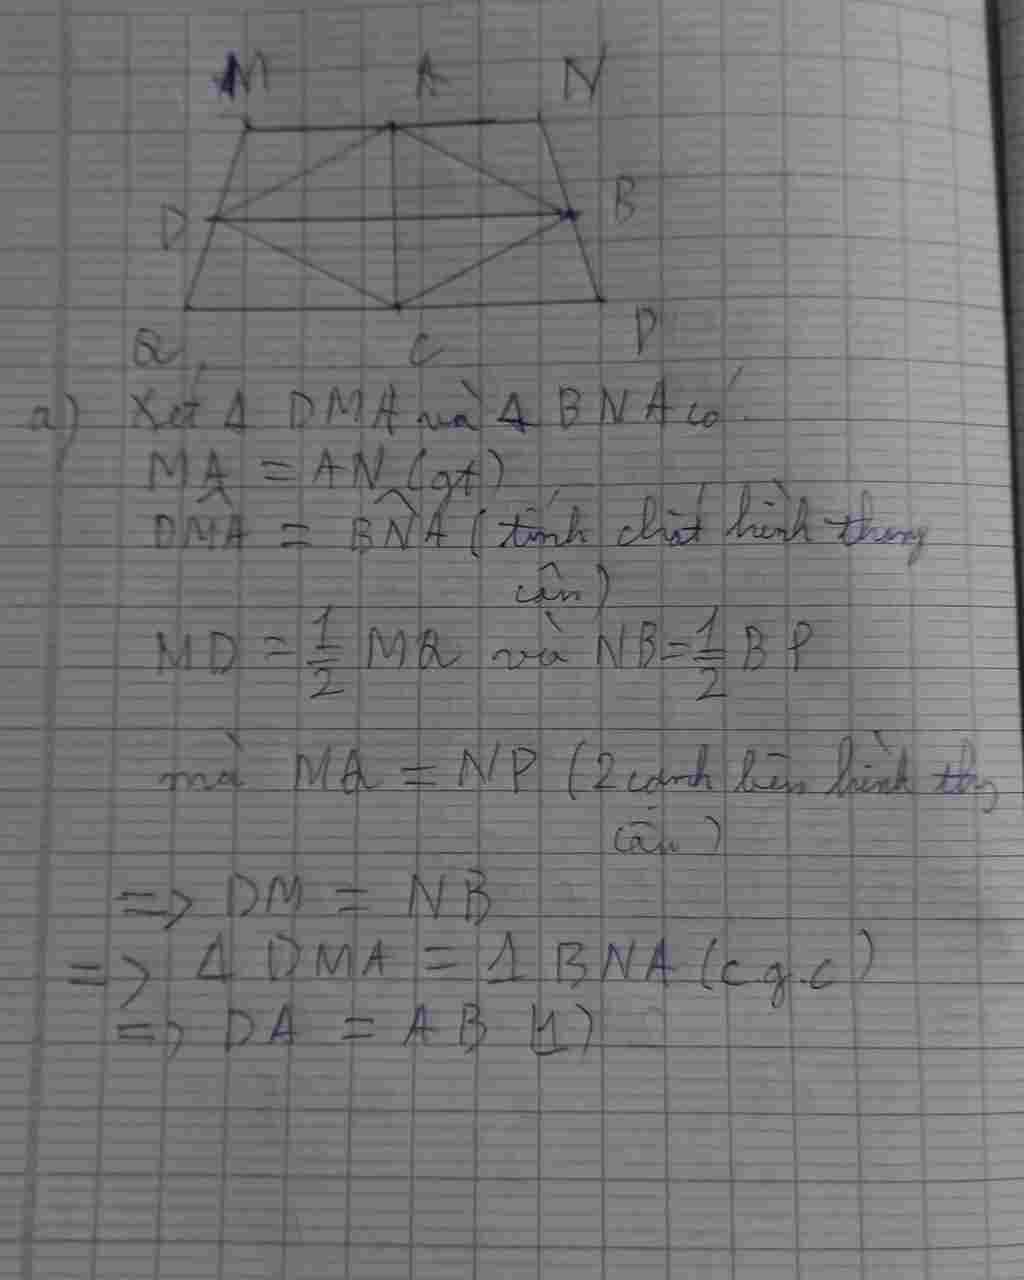 M A N
D B
Q C P
a) Xét Δ DMA và Δ BNA có
MA = AN (gt)
DM̂A = BN̂A (tính chất hình thang
cân)
MD = 1/2 MQ và NB = 1/2 BP
mà MQ = NP (2 cạnh bên hình thg
cân)
=> DM = NB
=> Δ DMA = Δ BNA (c.g.c)
=> DA = AB (1)